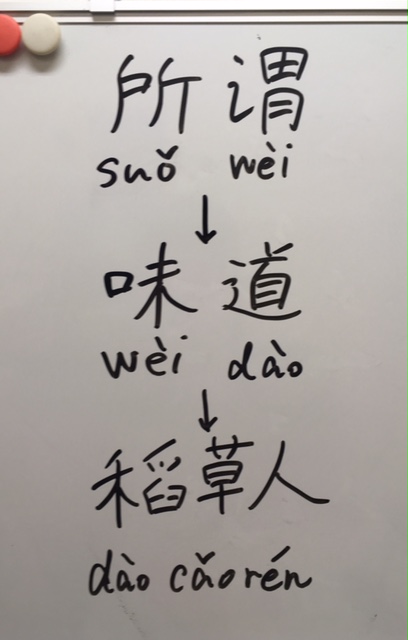 所谓
suǒ wèi
↓
味道
wèi dào
↓
稻草人
dào cǎo rén